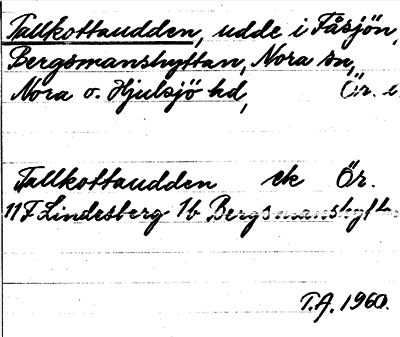 Tallkottaudden, udde i Fåsjön,
Bergsmanshyttan, Nora sn,
Nora o. Hjulsjö hd, Ör.
Tallkottaudden ek Ör.
11F Lindesberg 1b Bergsmanshytt
T.A. 1960.